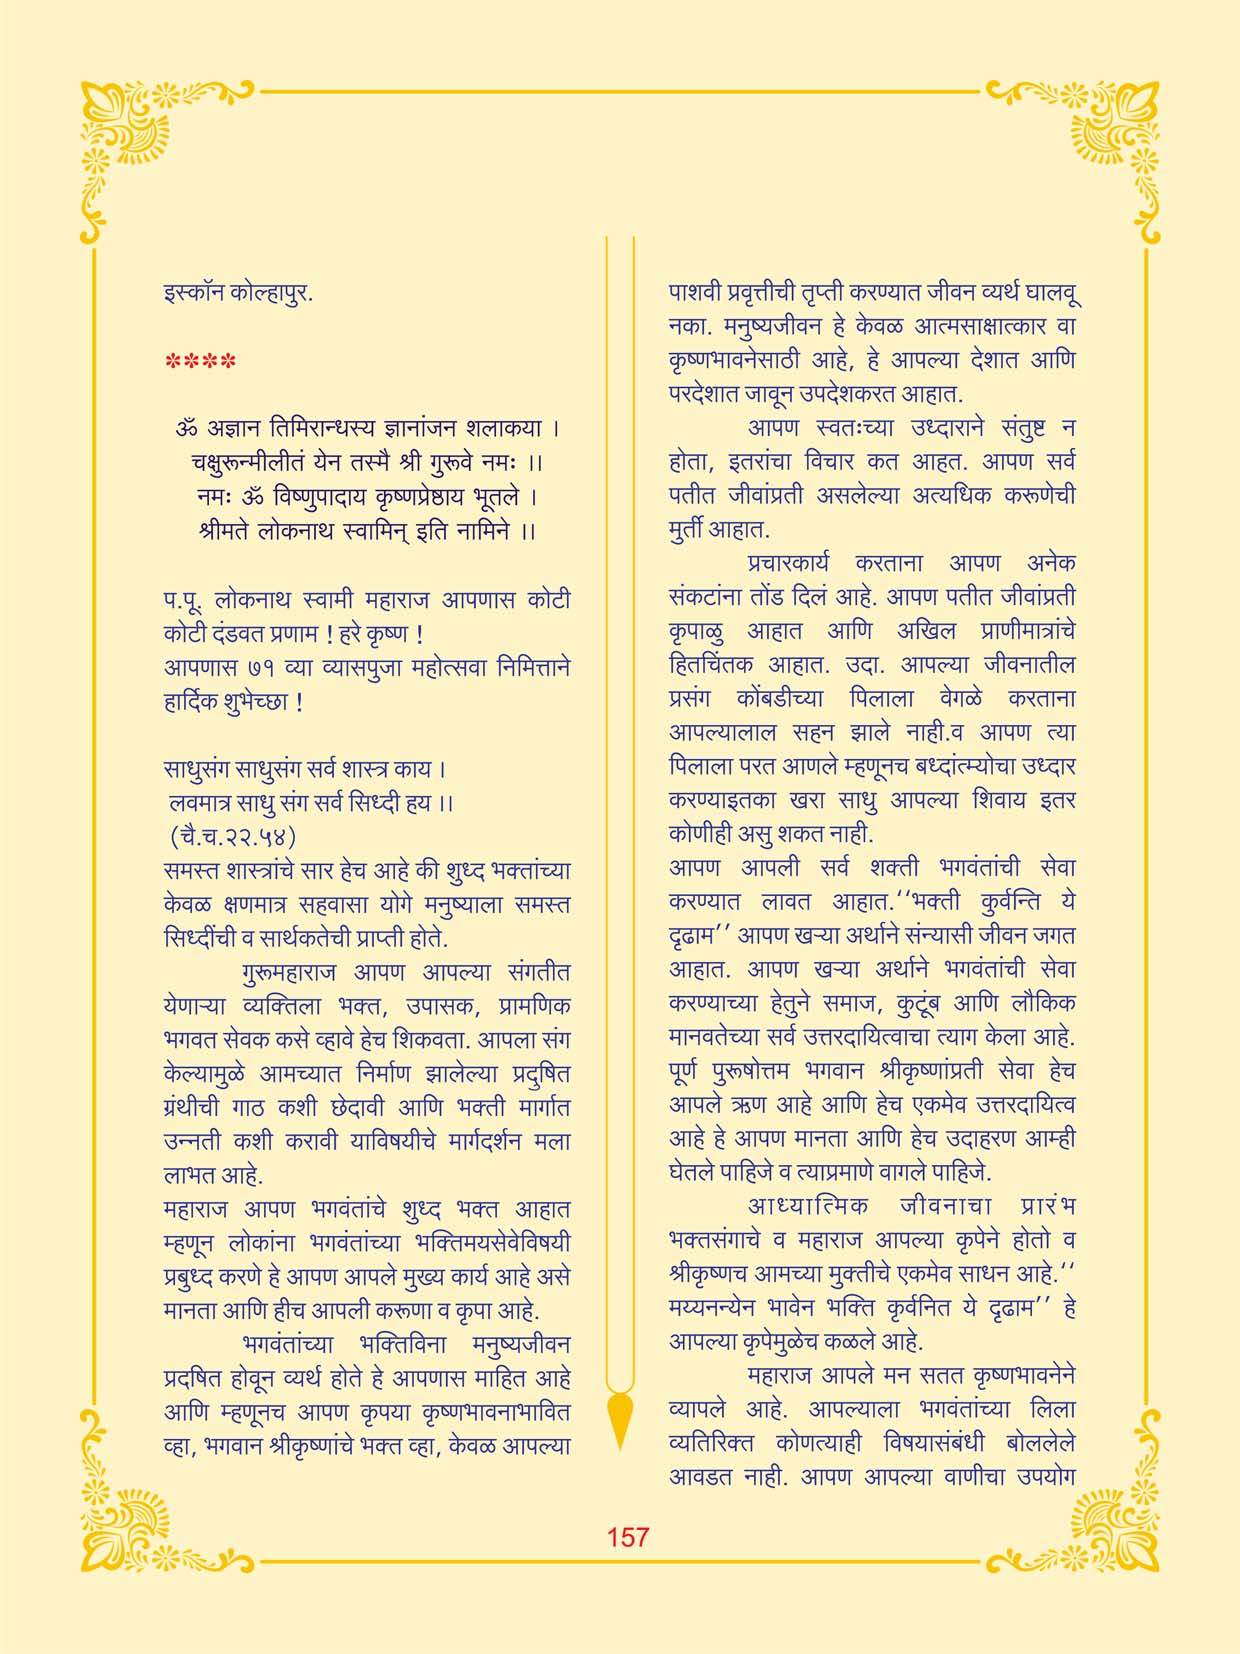 इस्कॉन कोल्हापुर.
****
ॐ अज्ञान तिमिरान्धस्य ज्ञानांजन शलाकया ।
चक्षुरून्मीलीतं येन तस्मै श्री गुरूवे नमः ।।
नमः ॐ विष्णुपादाय कृष्णप्रेष्ठाय भूतले ।
श्रीमते लोकनाथ स्वामिन् इति नामिने ।।
प.पू. लोकनाथ स्वामी महाराज आपणास कोटी
कोटी दंडवत प्रणाम ! हरे कृष्ण !
आपणास ७१ व्या व्यासपुजा महोत्सवा निमित्ताने
हार्दिक शुभेच्छा !
साधुसंग साधुसंग सर्व शास्त्र काय ।
लवमात्र साधु संग सर्व सिध्दी हय ।।
(चै.च.२२.५४)
समस्त शास्त्रांचे सार हेच आहे की शुध्द भक्तांच्या
केवळ क्षणमात्र सहवासा योगे मनुष्याला समस्त
सिध्दींची व सार्थकतेची प्राप्ती होते.
गुरूमहाराज आपण आपल्या संगतीत
येणाऱ्या व्यक्तिला भक्त, उपासक, प्रामणिक
भगवत सेवक कसे व्हावे हेच शिकवता. आपला संग
केल्यामुळे आमच्यात निर्माण झालेल्या प्रदुषित
ग्रंथीची गाठ कशी छेदावी आणि भक्ती मार्गात
उन्नती कशी करावी याविषयीचे मार्गदर्शन मला
लाभत आहे.
महाराज आपण भगवंतांचे शुध्द भक्त आहात
म्हणून लोकांना भगवंतांच्या भक्तिमयसेवेविषयी
प्रबुध्द करणे हे आपण आपले मुख्य कार्य आहे असे
मानता आणि हीच आपली करूणा व कृपा आहे.
भगवंतांच्या भक्तिविना मनुष्यजीवन
प्रदषित होवून व्यर्थ होते हे आपणास माहित आहे
आणि म्हणूनच आपण कृपया कृष्णभावनाभावित
व्हा, भगवान श्रीकृष्णांचे भक्त व्हा, केवळ आपल्या
पाशवी प्रवृत्तीची तृप्ती करण्यात जीवन व्यर्थ घालवू
नका. मनुष्यजीवन हे केवळ आत्मसाक्षात्कार वा
कृष्णभावनेसाठी आहे, हे आपल्या देशात आणि
परदेशात जावून उपदेशकरत आहात.
आपण स्वतःच्या उध्दाराने संतुष्ट न
होता, इतरांचा विचार कत आहत. आपण सर्व
पतीत जीवांप्रती असलेल्या अत्यधिक करूणेची
मुर्ती आहात.
प्रचारकार्य करताना आपण अनेक
संकटांना तोंड दिलं आहे. आपण पतीत जीवांप्रती
कृपाळु आहात आणि अखिल प्राणीमात्रांचे
हितचिंतक आहात. उदा. आपल्या जीवनातील
प्रसंग कोंबडीच्या पिलाला वेगळे करताना
आपल्यालाल सहन झाले नाही.व आपण त्या
पिलाला परत आणले म्हणूनच बध्दांत्म्योचा उध्दार
करण्याइतका खरा साधु आपल्या शिवाय इतर
कोणीही असु शकत नाही.
आपण आपली सर्व शक्ती भगवंतांची सेवा
करण्यात लावत आहात.‘‘भक्ती कुर्वन्ति ये
दृढाम’’ आपण खऱ्या अर्थाने संन्यासी जीवन जगत
आहात. आपण खऱ्या अर्थाने भगवंतांची सेवा
करण्याच्या हेतुने समाज, कुटूंब आणि लौकिक
मानवतेच्या सर्व उत्तरदायित्वाचा त्याग केला आहे.
पूर्ण पुरूषोत्तम भगवान श्रीकृष्णांप्रती सेवा हेच
आपले ऋण आहे आणि हेच एकमेव उत्तरदायित्व
आहे हे आपण मानता आणि हेच उदाहरण आम्ही
घेतले पाहिजे व त्याप्रमाणे वागले पाहिजे.
आध्यात्मिक जीवनाचा प्रारंभ
भक्तसंगाचे व महाराज आपल्या कृपेने होतो व
श्रीकृष्णच आमच्या मुक्तीचे एकमेव साधन आहे.‘‘
मय्यनन्येन भावेन भक्ति कृर्वनित ये दृढाम’’ हे
आपल्या कृपेमुळेच कळले आहे.
महाराज आपले मन सतत कृष्णभावनेने
व्यापले आहे. आपल्याला भगवंतांच्या लिला
व्यतिरिक्त कोणत्याही विषयासंबंधी बोललेले
आवडत नाही. आपण आपल्या वाणीचा उपयोग
157